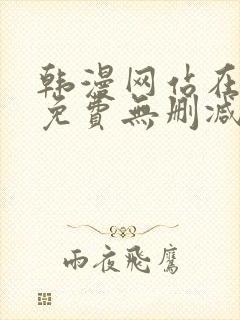 韩漫网站在
免費無删减
雨夜飛鷹